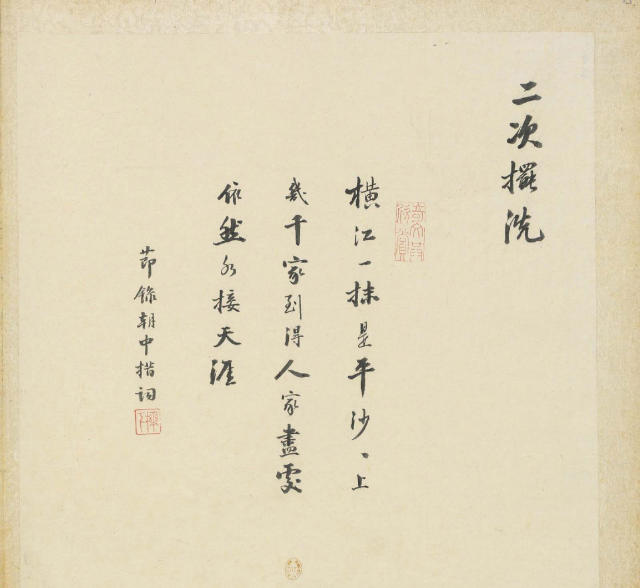 二次擺洗
橫江一抹是平沙、上
幾千家到得人家盡處
依然水接天涯
節錄朝中措詞